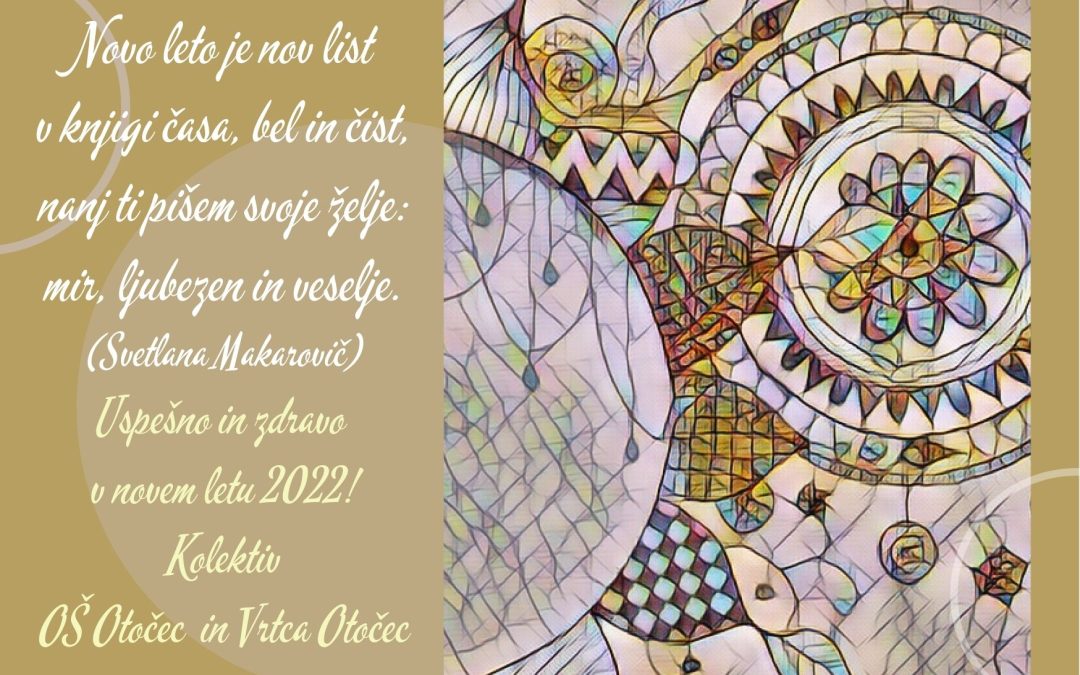 Novo leto je nov list
v knjigi časa, bel in čist,
nanj ti pišem svoje želje:
mir, ljubezen in veselje.
(Svetlana Makarovič)
Uspešno in zdravo
v novem letu 2022!
Kolektiv
OŠ Otočec in Vrtca Otočec